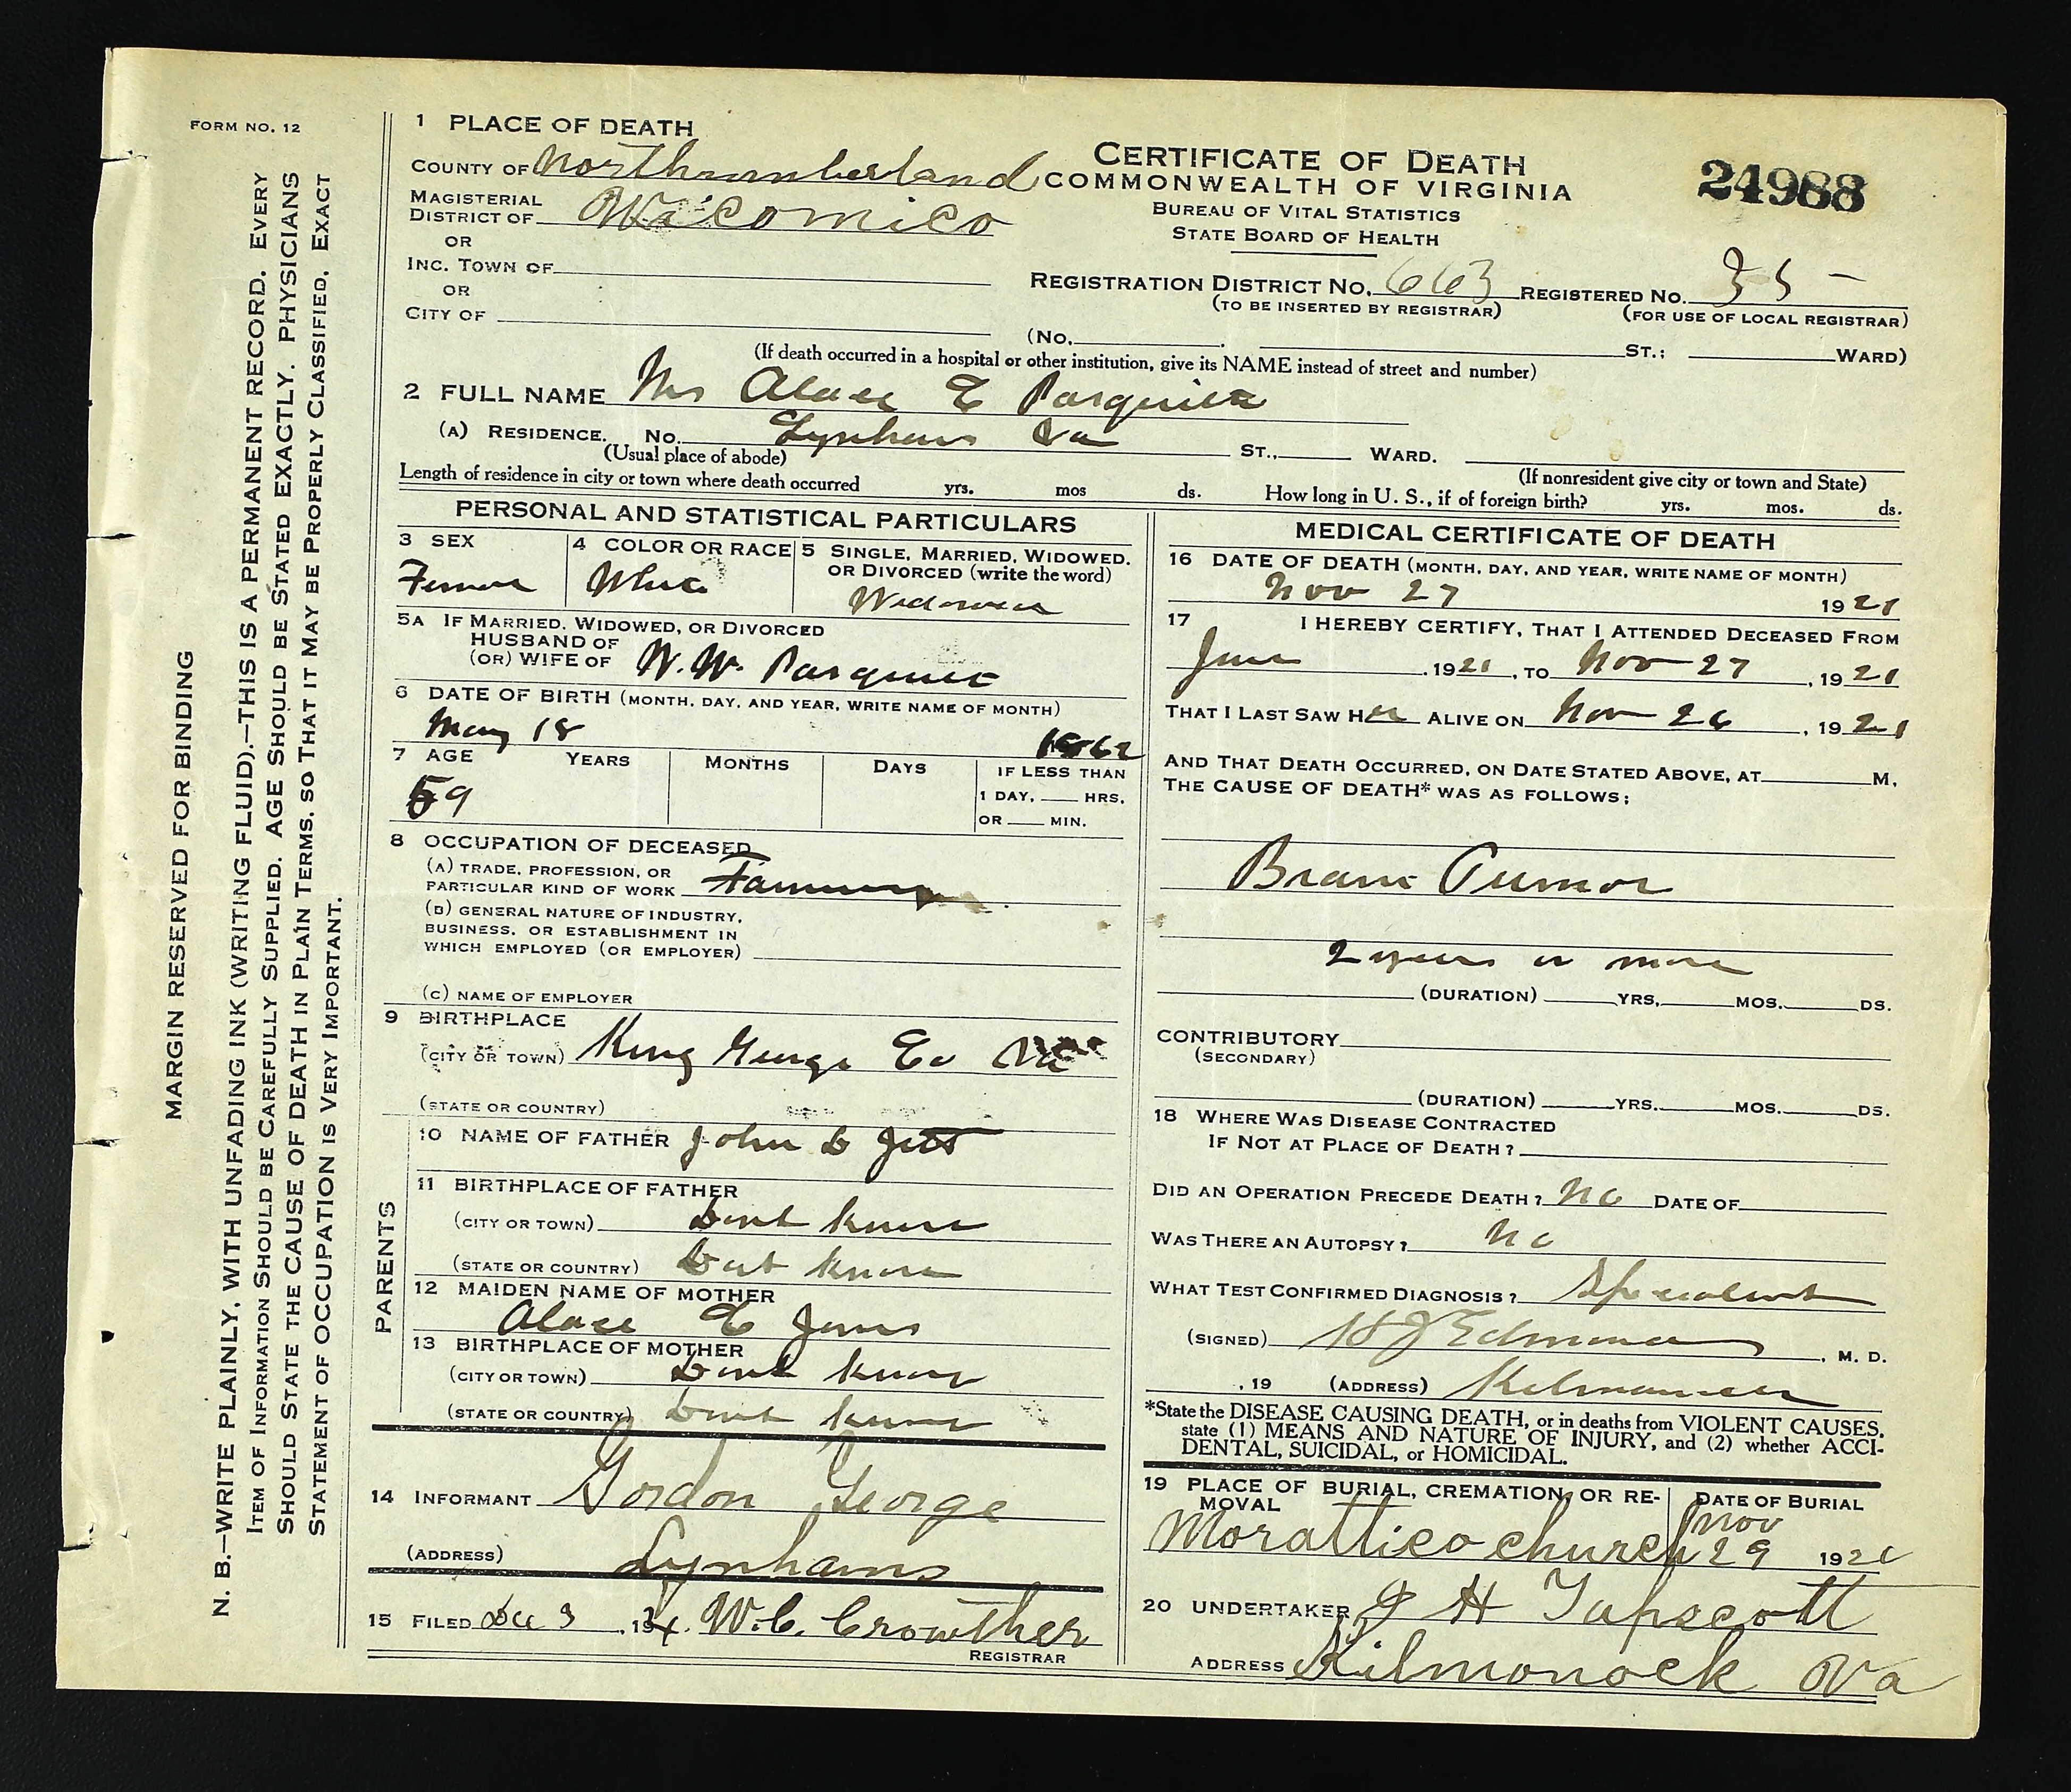 FORM NO. 12
MARGIN RESERVED FOR BINDING
N. B.—WRITE PLAINLY, WITH UNFADING INK (WRITING FLUID).—THIS IS A PERMANENT RECORD. EVERY
ITEM OF INFORMATION SHOULD BE CAREFULLY SUPPLIED. AGE SHOULD BE STATED EXACTLY. PHYSICIANS
SHOULD STATE THE CAUSE OF DEATH IN PLAIN TERMS, SO THAT IT MAY BE PROPERLY CLASSIFIED. EXACT
STATEMENT OF OCCUPATION IS VERY IMPORTANT.
1 PLACE OF DEATH
COUNTY OF Northumberland
MAGISTERIAL
DISTRICT OF Wicomico
OR
INC. TOWN OF
OR
CITY OF
CERTIFICATE OF DEATH
COMMONWEALTH OF VIRGINIA
BUREAU OF VITAL STATISTICS
STATE BOARD OF HEALTH
24988
REGISTRATION DISTRICT NO. 663 REGISTERED NO. 35
(TO BE INSERTED BY REGISTRAR) (FOR USE OF LOCAL REGISTRAR)
(No. ST.; WARD)
(If death occurred in a hospital or other institution, give its NAME instead of street and number)
2 FULL NAME Mrs Alace E
(A) RESIDENCE. No. Lynhams Va ST., WARD.
(Usual place of abode) (If nonresident give city or town and State)
Length of residence in city or town where death occurred yrs. mos ds. How long in U. S., if of foreign birth? yrs. mos. ds.
PERSONAL AND STATISTICAL PARTICULARS
3 SEX
Female
4 COLOR OR RACE
White
5 SINGLE, MARRIED, WIDOWED,
OR DIVORCED (write the word)
Widowed
5A IF MARRIED, WIDOWED, OR DIVORCED
HUSBAND OF
(OR) WIFE OF W. W.
6 DATE OF BIRTH (MONTH, DAY, AND YEAR, WRITE NAME OF MONTH)
May 18 1862
7 AGE YEARS MONTHS DAYS IF LESS THAN
1 DAY, HRS.
OR MIN.
59
8 OCCUPATION OF DECEASED
(A) TRADE, PROFESSION, OR
PARTICULAR KIND OF WORK Farming
(B) GENERAL NATURE OF INDUSTRY,
BUSINESS, OR ESTABLISHMENT IN
WHICH EMPLOYED (OR EMPLOYER)
(C) NAME OF EMPLOYER
9 BIRTHPLACE
(CITY OR TOWN) King George Co Va
(STATE OR COUNTRY)
PARENTS
10 NAME OF FATHER John D Jett
11 BIRTHPLACE OF FATHER
(CITY OR TOWN) Dont know
(STATE OR COUNTRY) Dont know
12 MAIDEN NAME OF MOTHER
Alace E Jones
13 BIRTHPLACE OF MOTHER
(CITY OR TOWN) Dont know
(STATE OR COUNTRY) Dont know
14 INFORMANT Gordon George
(ADDRESS) Lynhams
15 FILED Dec 3, 19 W. C. Crowther
REGISTRAR
MEDICAL CERTIFICATE OF DEATH
16 DATE OF DEATH (MONTH, DAY, AND YEAR, WRITE NAME OF MONTH)
Nov 27 1921
17 I HEREBY CERTIFY, THAT I ATTENDED DECEASED FROM
June, 1921, TO Nov 27, 1921
THAT I LAST SAW HER ALIVE ON Nov 26, 1921
AND THAT DEATH OCCURRED, ON DATE STATED ABOVE, AT M.
THE CAUSE OF DEATH* WAS AS FOLLOWS:
Brain Tumor
2 years or more
(DURATION) YRS. MOS. DS.
CONTRIBUTORY
(SECONDARY)
(DURATION) YRS. MOS. DS.
18 WHERE WAS DISEASE CONTRACTED
IF NOT AT PLACE OF DEATH?
DID AN OPERATION PRECEDE DEATH? No DATE OF
WAS THERE AN AUTOPSY? No
WHAT TEST CONFIRMED DIAGNOSIS? Specialist
(SIGNED) , M. D.
, 19 (ADDRESS)
*State the DISEASE CAUSING DEATH, or in deaths from VIOLENT CAUSES,
state (1) MEANS AND NATURE OF INJURY, and (2) whether ACCI-
DENTAL, SUICIDAL, or HOMICIDAL.
19 PLACE OF BURIAL, CREMATION, OR RE-
MOVAL
Morattico church
DATE OF BURIAL
Nov
29 1921
20 UNDERTAKER J H Tapscott
ADDRESS Kilmonock Va